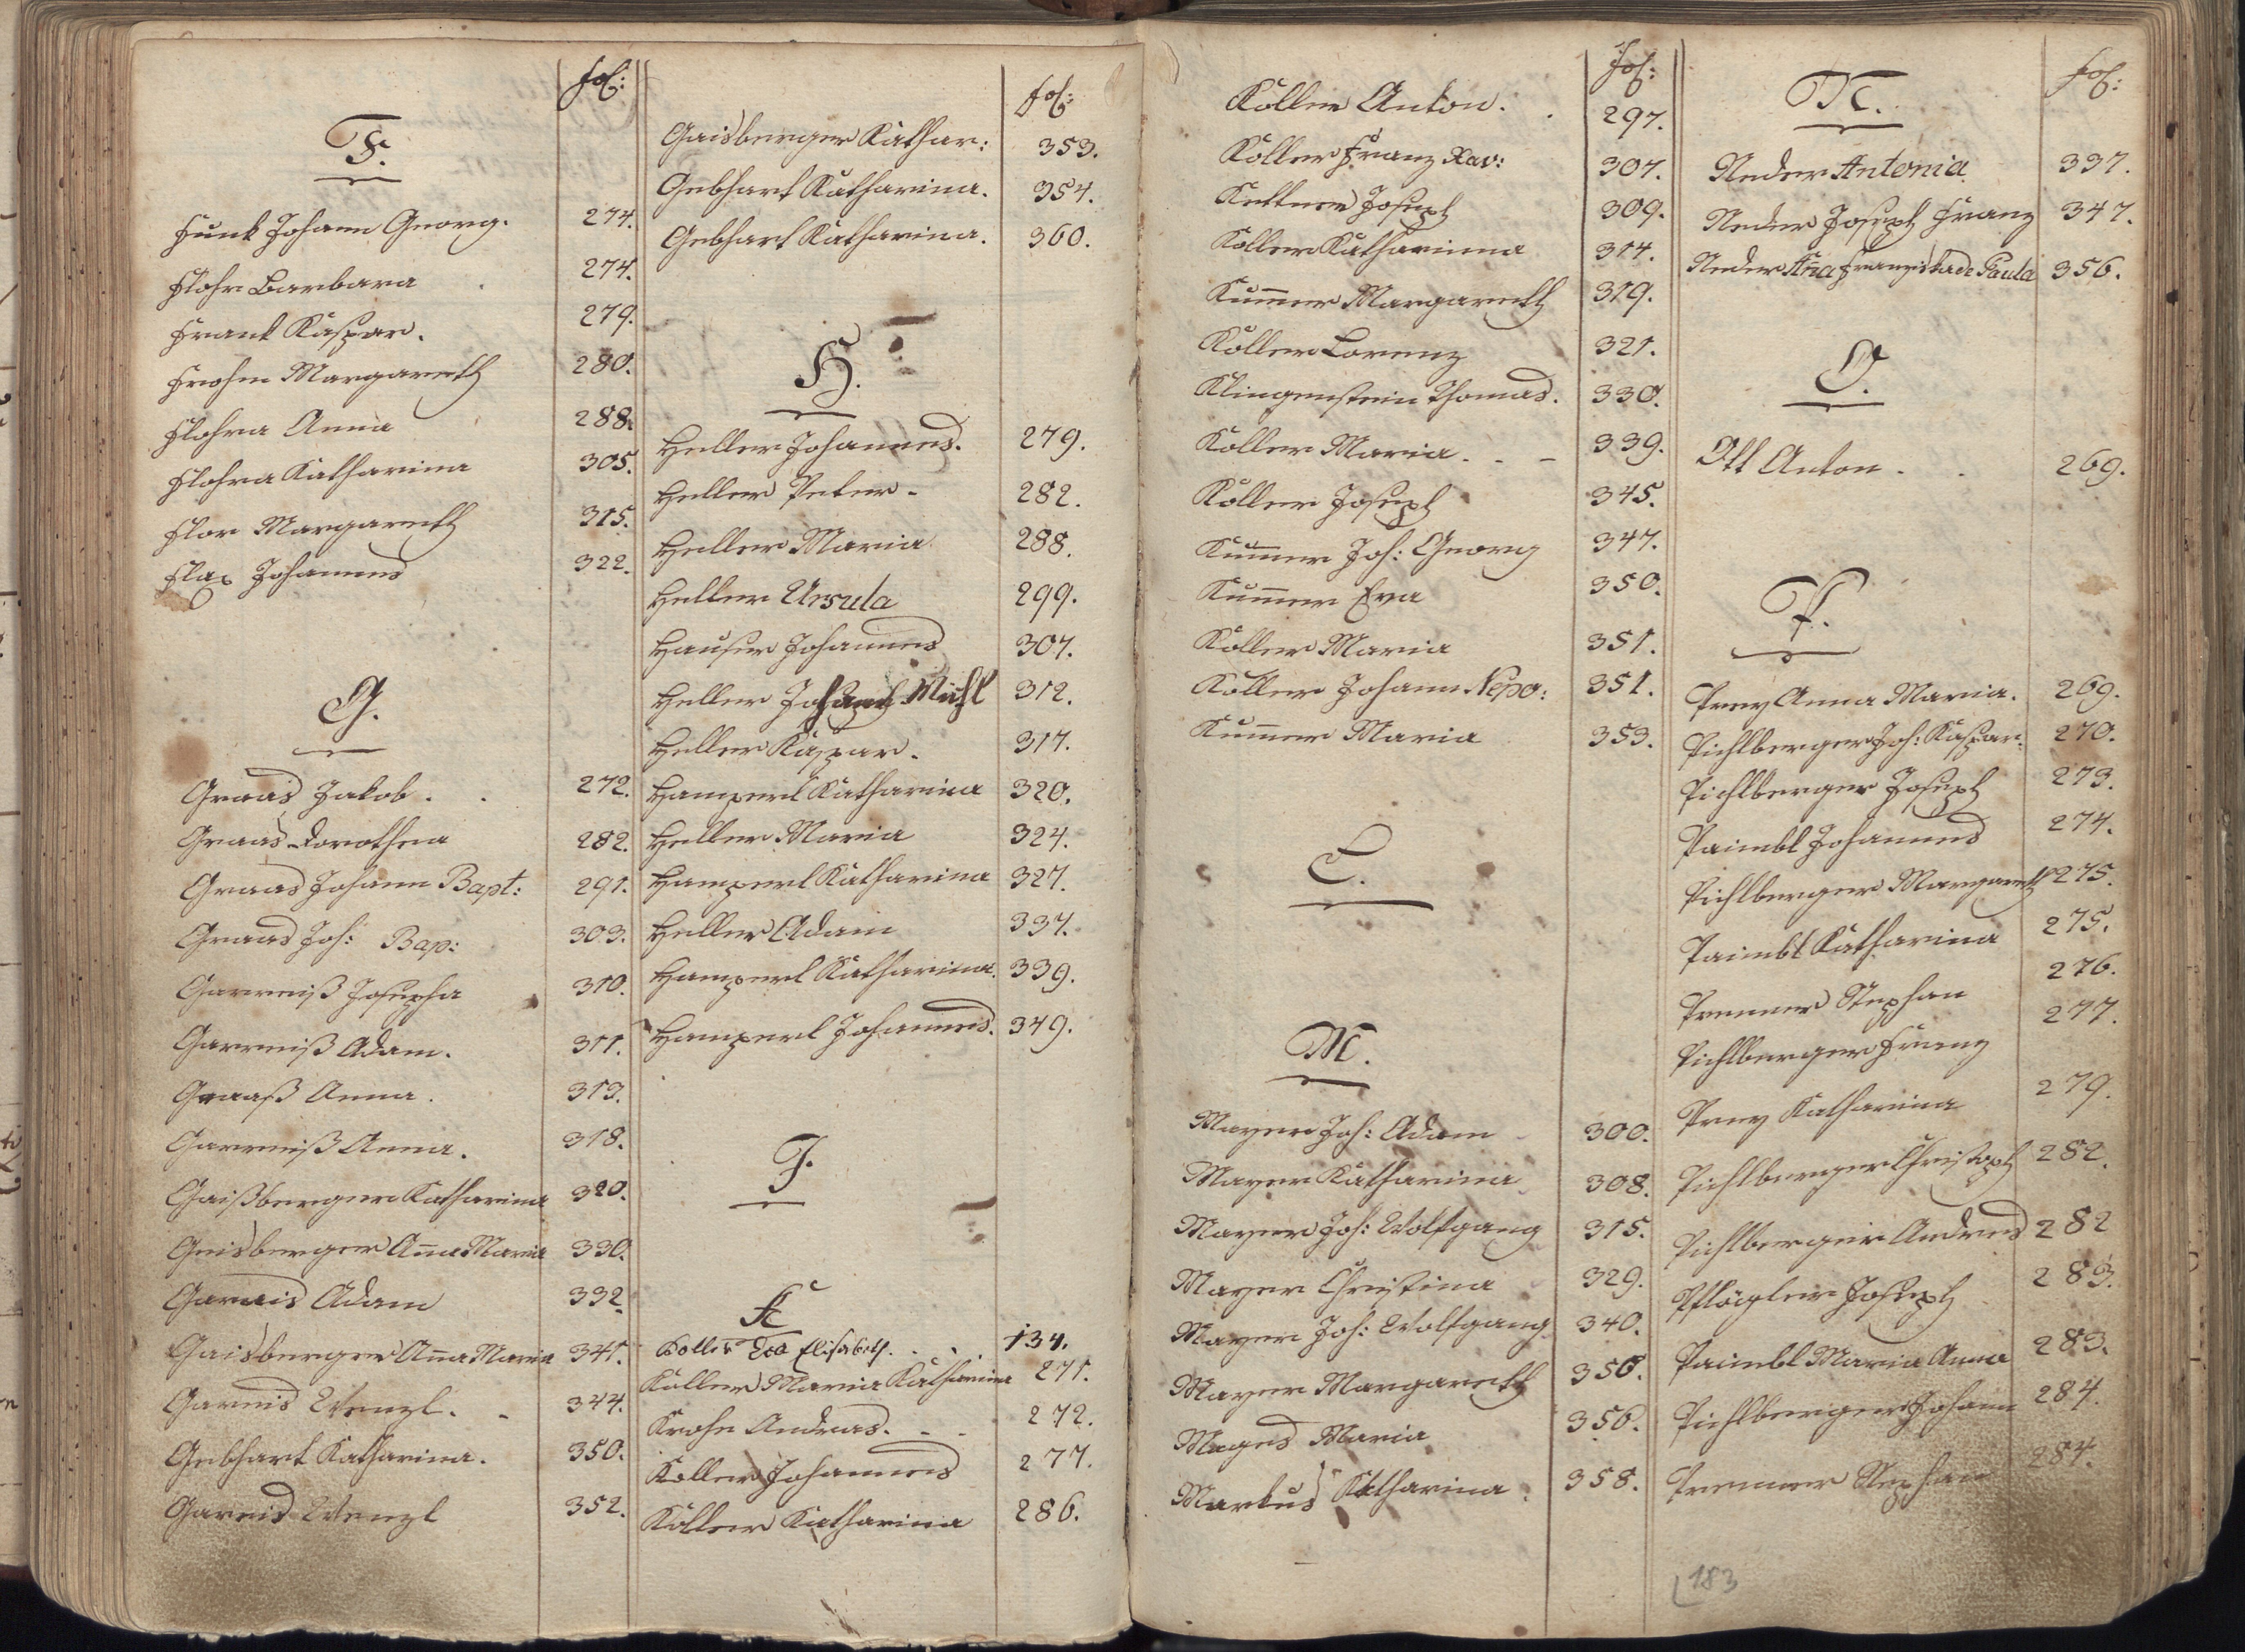 fol:
F.
Funk Johann Georg. 274.
Flohr Barbara 274.
Frank Kaspar. 279.
Frohn Margareth 280.
Flohra Anna 288.
Flohra Katharina 305.
Flor Margareth 315.
Flax Johannes 322.
G.
Graas Jakob. 272.
Graas Dorothea 282.
Graas Johann Bapt: 291.
Graas Joh: Bap: 303.
Garreiß Josepha 310.
Garreiß Adam. 311.
Graaß Anna. 313.
Garreiß Anna. 318.
Gaißberger Katharina 320.
Geisberger Aña Maria 330.
Gareis Adam 332.
Gaisberger Aña Maria 341.
Gareis Wenzl. 344.
Gebhart Katharina. 350.
Gareis Wenzl 352.
fol:
Gaisberger Kathar: 353.
Gebhart Katharina. 354.
Gebhart Katharina. 360.
H.
Heller Johannes. 279.
Heller Peter. 282.
Heller Maria 288.
Heller Ursula 299.
Hauser Johannes 307.
Heller Michl 312.
Heller Kaspar. 317.
Hamperl Katharina 320.
Heller Maria 324.
Hamperl Katharina 327.
Heller Adam 337.
Hamperl Katharina. 339.
Hamperl Johannes. 349.
J.
K
Koller Eva Elisabeth. 134.
Koller Maria Katharina 271.
Krohn Andreas. 272.
Koller Johannes 277.
Koller Katharina 286.
fol:
Koller Anton. 297.
Koller Franz Xav: 307.
Kettner Joseph 309.
Koller Katharinna 314.
Kum̄er Margareth 319.
Koller Lorenz 321.
Klingenstein Thomas. 330.
Koller Maria. 339.
Koller Joseph 345.
Kum̄er Joh: Georg 347.
Kum̄er Eva 350.
Koller Maria 351.
Koller Johann Nepo: 351.
Kum̄er Maria 353.
L.
M.
Mayer Joh: Adam 300.
Mayer Katharina 308.
Mayer Joh: Wolfgang 315.
Mayer Christina 329.
Mayer Joh: Wolfgang 340.
Mayer Margareth 356.
Mages Maria 356.
Markus Katharina. 358.
fol:
N.
Neder Antonia 337.
Neder Joseph Franz 347.
Neder Aña Franziska de Paula 356.
O.
Ott Anton. 269.
P.
Prey Anna Maria. 269.
Pichlberger Joh: Kaspar. 270.
Pichlberger Joseph 273.
Paimbl Johannes 274.
Pichlberger Margareth 275.
Paimbl Katharina 275.
Premer Stephan 276.
Pichlberger Franz 277.
Prey Katharina 279.
Pichlberger Christoph 282.
Pichlberger Andreas 282
Pflögler Joseph 283.
Paimbl Maria Anna 283.
Pichlberger Johann 284.
Premer Stephan 284.
183